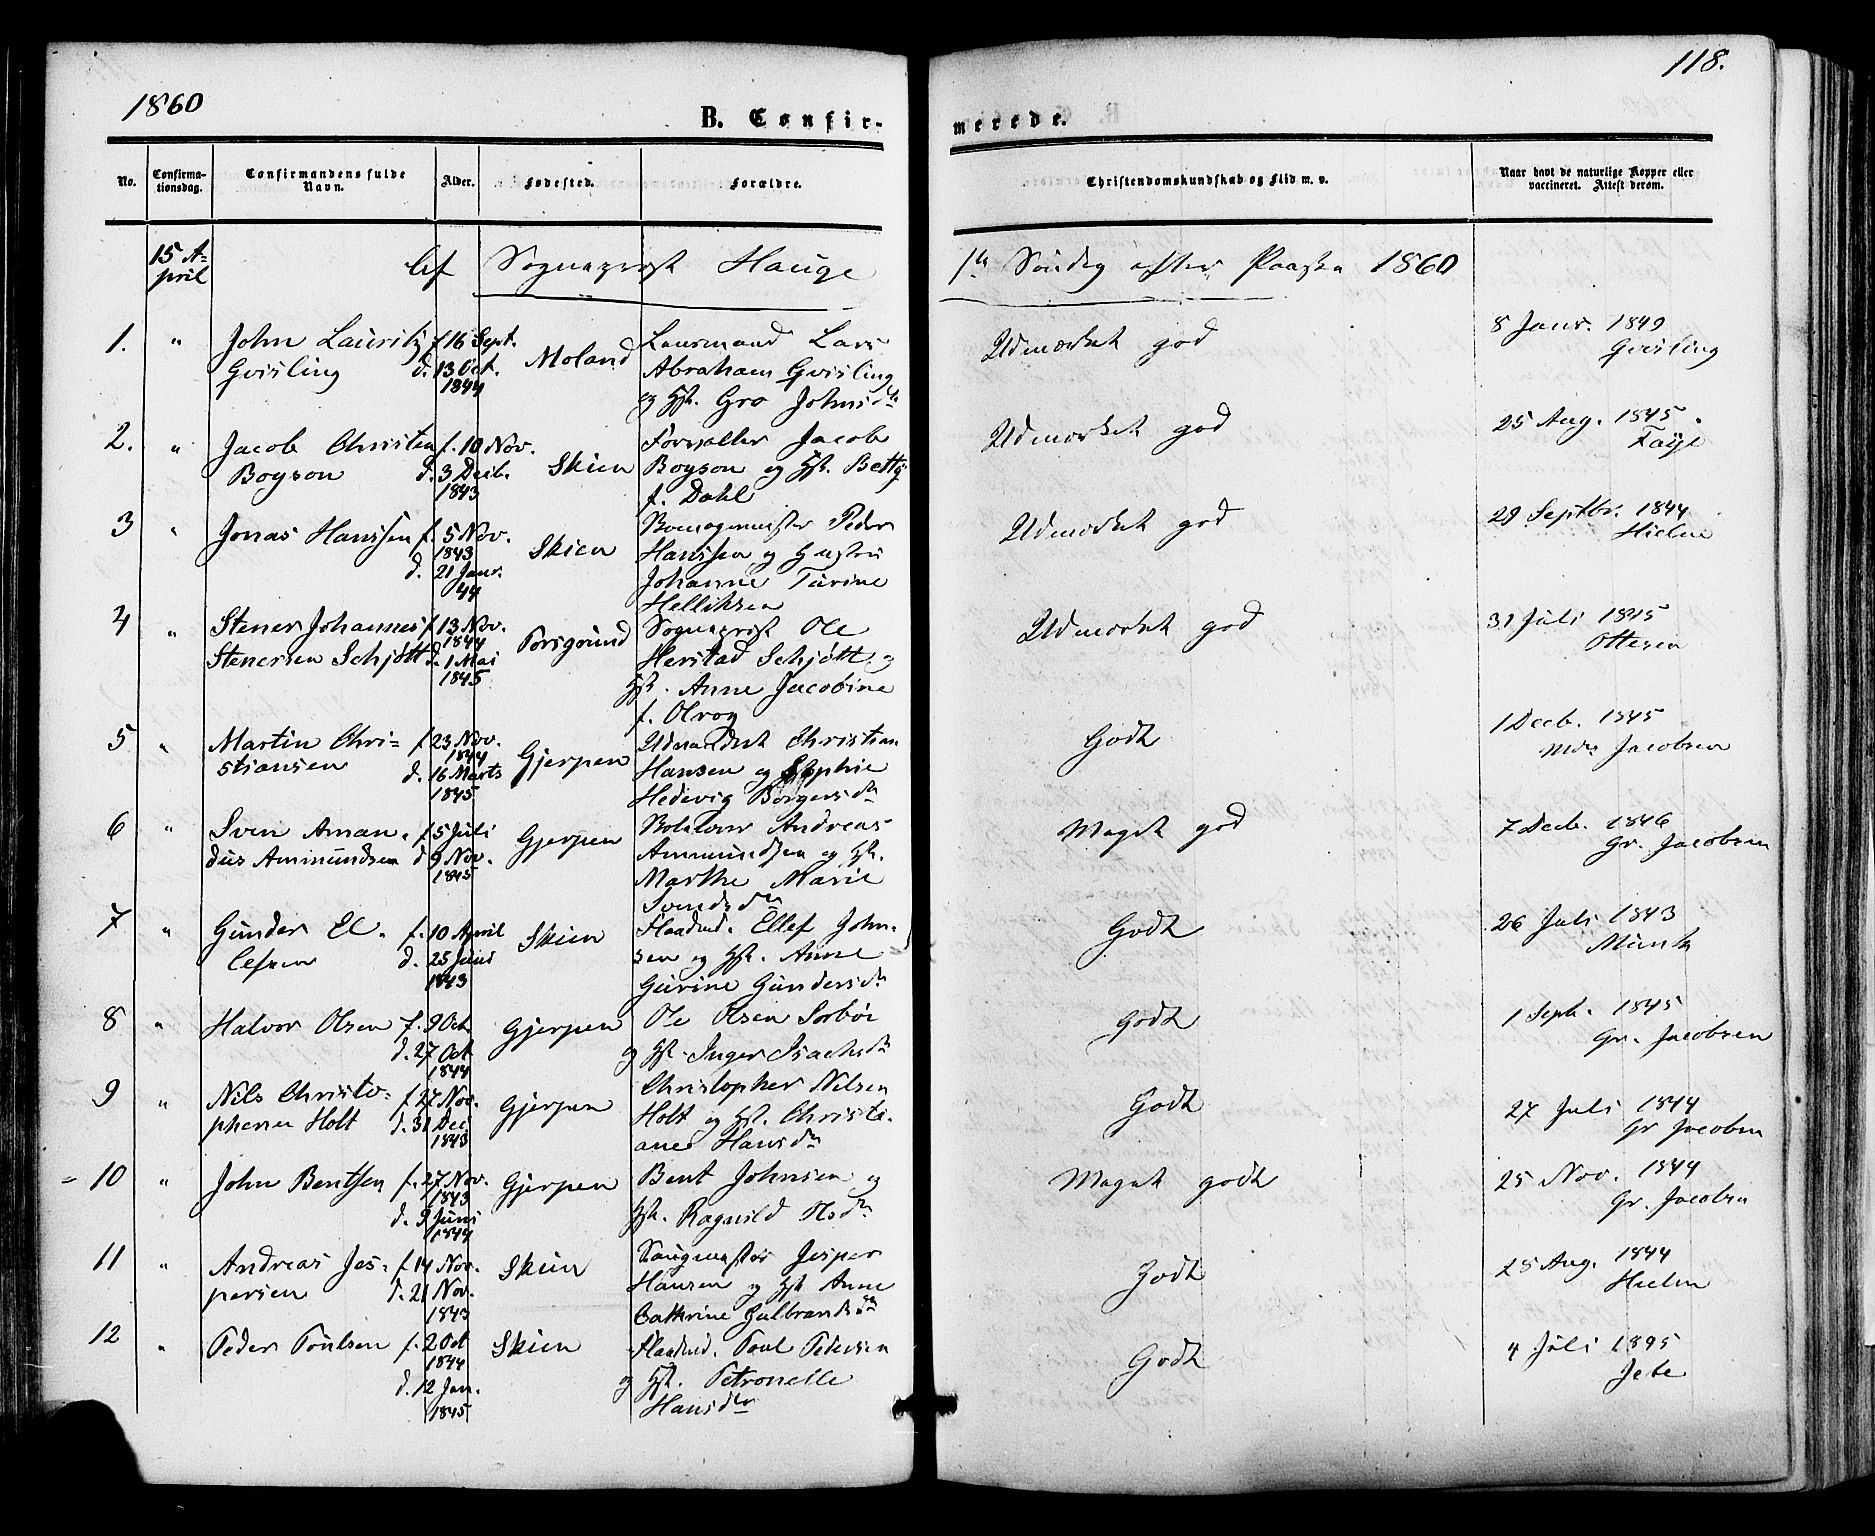 1860
118.
B. Confir-
merede.
No.
Confirma-
tionsdag.
Confirmandens fulde
Navn.
Alder.
Fødested.
Forældre.
Christendomskundskab og Flid m. v.
Naar havt de naturlige Kopper eller
vaccineret. Attest derom.
15 A-
pril
af Sogneprost Hauge
1ste Søndag efter Paaske 1860
1. " John Lauritz f 16 Sept. Moland
Gvisling d. 13 Oct.
1844
Lars
Abraham Gvisling
og Hst. Gro Johnsdtr
Udmærket god
8 Janr. 1849
Gvisling
2. " Jacob Christen f. 10 Nov. Skien
Boyson d. 3 Decb.
1843
Forvalter Jacob
Boyson og Hst. Betty
f. Dahl
Udmærket god
25 Aug. 1845
Faye
3 " Jonas Hanssen f. 5 Nov. Skien
1843
d. 21 Janr.
44
Peder
Hanssen og Hustru
Johanne Turine
Helliksen
Udmærket god
28 Septbr. 1844
Hielm
4 " Stener Johannes f 13 Nov. Porsgrund
1844
Stenersen Schjøtt d. 1 Mai
1845
Sogneprost Ole
Herstad Schjøtt og
Hst. Anne Jacobine
f. Olrog
Udmærket god
31 Juli 1845
Ottesen
5 " Martin Chri- f 23 Nov. Gjerpen
1844
stiansen d. 16 Marts
1845
Christian
Hansen og Sophie
Hedevig Borgersdtr
Godt
1 Decb. 1845
Jacobsen
6 " Sven Aman- f 5 Juli Gjerpen
dus Ammundsen d 9 Nov.
1845
Andreas
Ammundsen og Hst.
Marthe Marie
Svendsdtr
Meget god
7 Decb. 1846
Gr. Jacobsen
7 " Gunder El- f. 10 April Skien
lefsen d. 25 Juni
1843
Ellef John-
sen og Hst. Anne
Gurine Gundersdtr
Godt
26 Juli 1843
Munk
8 " Halvor Olsen f. 9 Oct Gjerpen
d. 27 Oct
1844
Ole Olsen Sorbøe
og Hst. Inger Isachsdtr
Godt
1 Sept. 1845
Gr. Jacobsen
9 " Nils Christo- f 27 Nov. Gjerpen
phersen Holt d. 31 Dec
1843
Christopher Nilsen
Holt og Hst. Christi-
ane Hansdtr
Godt
27 Juli 1844
Gr Jacobsen
10 " John Bentsen f. 27 Nov. Gjerpen
1843
d. 9 Juni
1844
Bent Johnsen og
Hst. Ragnild
Meget godt
25 Nov. 1844
Gr. Jacobsen
11 " Andreas Jes- f 14 Nov. Skien
persen d. 21 Nov.
1843
Jesper
Hansen og Hst Anne
Cathrine Gulbrandsdtr
Godt
28 Aug. 1844
Hielm
12 " Peder Poulsen f. 2 Oct Skien
1844
d. 12 Jan.
1845
Poul Pedersen
og Hst. Petronelle
Hansdtr
Godt
4 Juli 1845